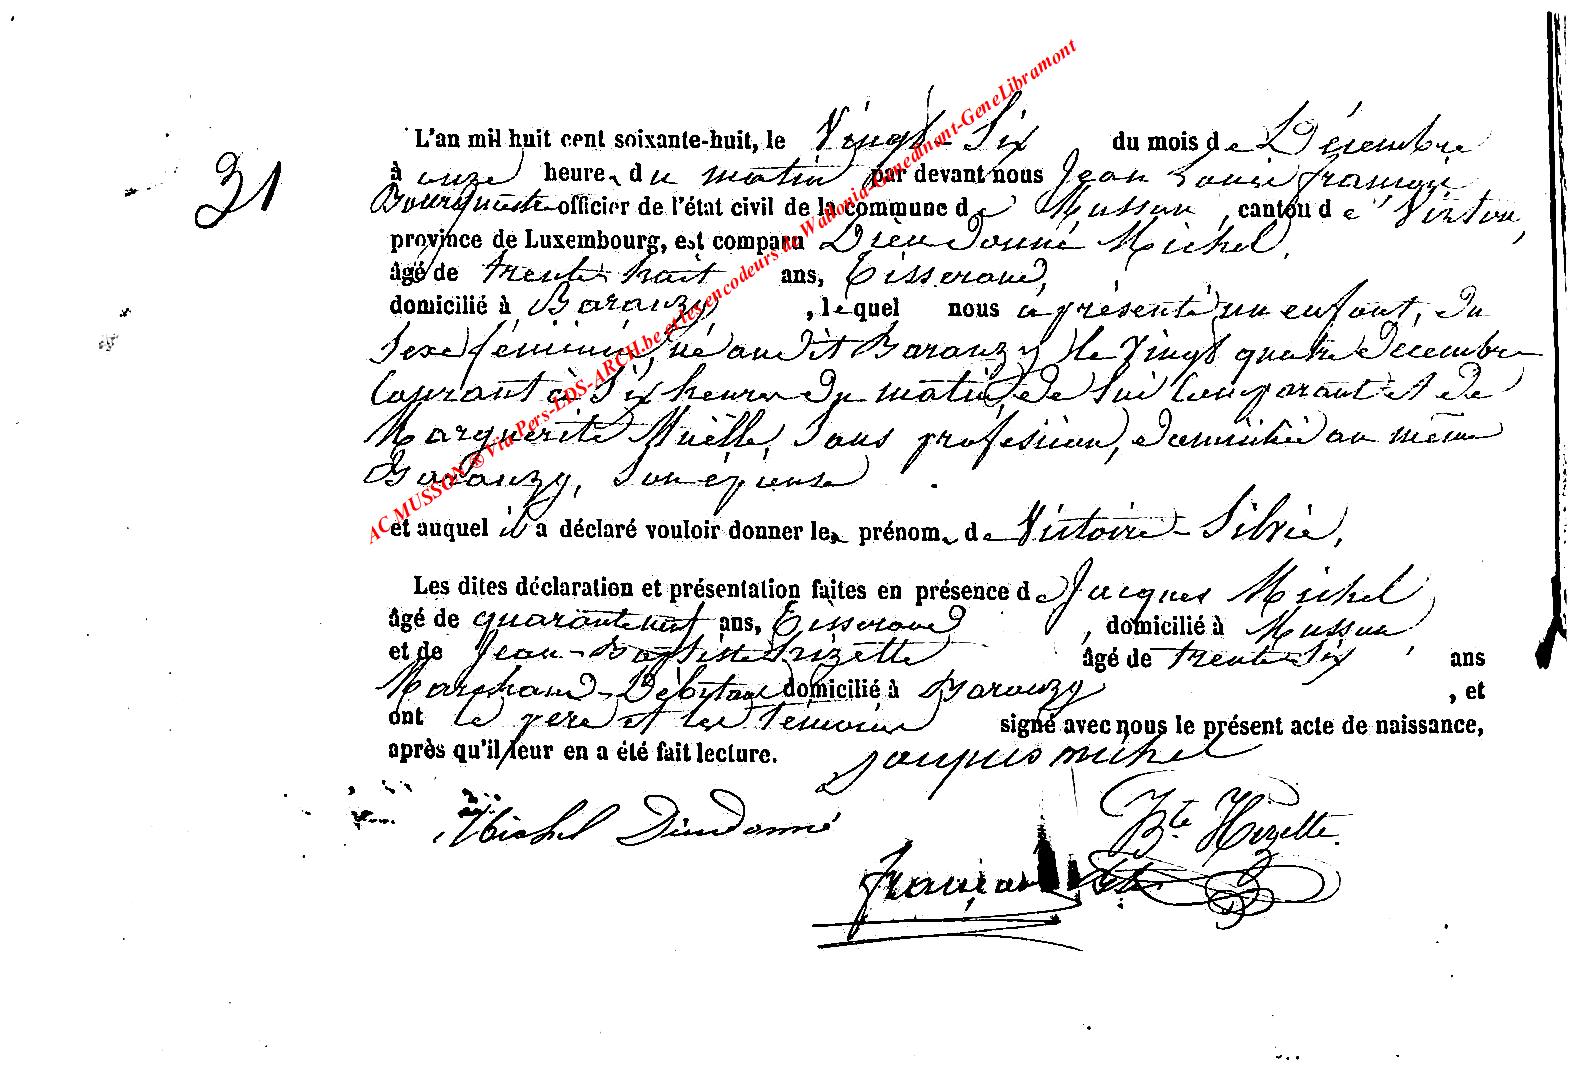 31
L'an mil huit cent soixante-huit, le Vingt-Six du mois de Décembre
à onze heures du matin par devant nous Jean Louis François
Bourgmestre officier de l'état civil de la commune de Musson, canton de Virton,
province de Luxembourg, est comparu Dieudonné Michel,
âgé de trente huit ans, Tisserand,
domicilié à Baranzy, lequel nous a présenté un enfant, du
Sexe féminin, né au dit Baranzy le vingt quatre Décembre
Courant à Six heures du matin, de lui Comparant et de
Marguerite, Sans profession, domiciliée au même
Baranzy, Son épouse
et auquel il a déclaré vouloir donner les prénoms de Victoire-Silvie,
Les dites déclaration et présentation faites en présence de Jacques Michel
âgé de quarante neuf ans, Tisserand, domicilié à Musson
et de Jean-Baptiste Hizette âgé de trente Six ans
Marchand-Débitant domicilié à Baranzy, et
ont le père et les témoins signé avec nous le présent acte de naissance,
après qu'il leur en a été fait lecture.
Jacques michel
Michel Dieudonné
Bte Hizette.
François
AC MUSSON ® Via Pers-LDS-ARCH.be et les encodeurs de Wallonia-Genedinant-GeneLibramont